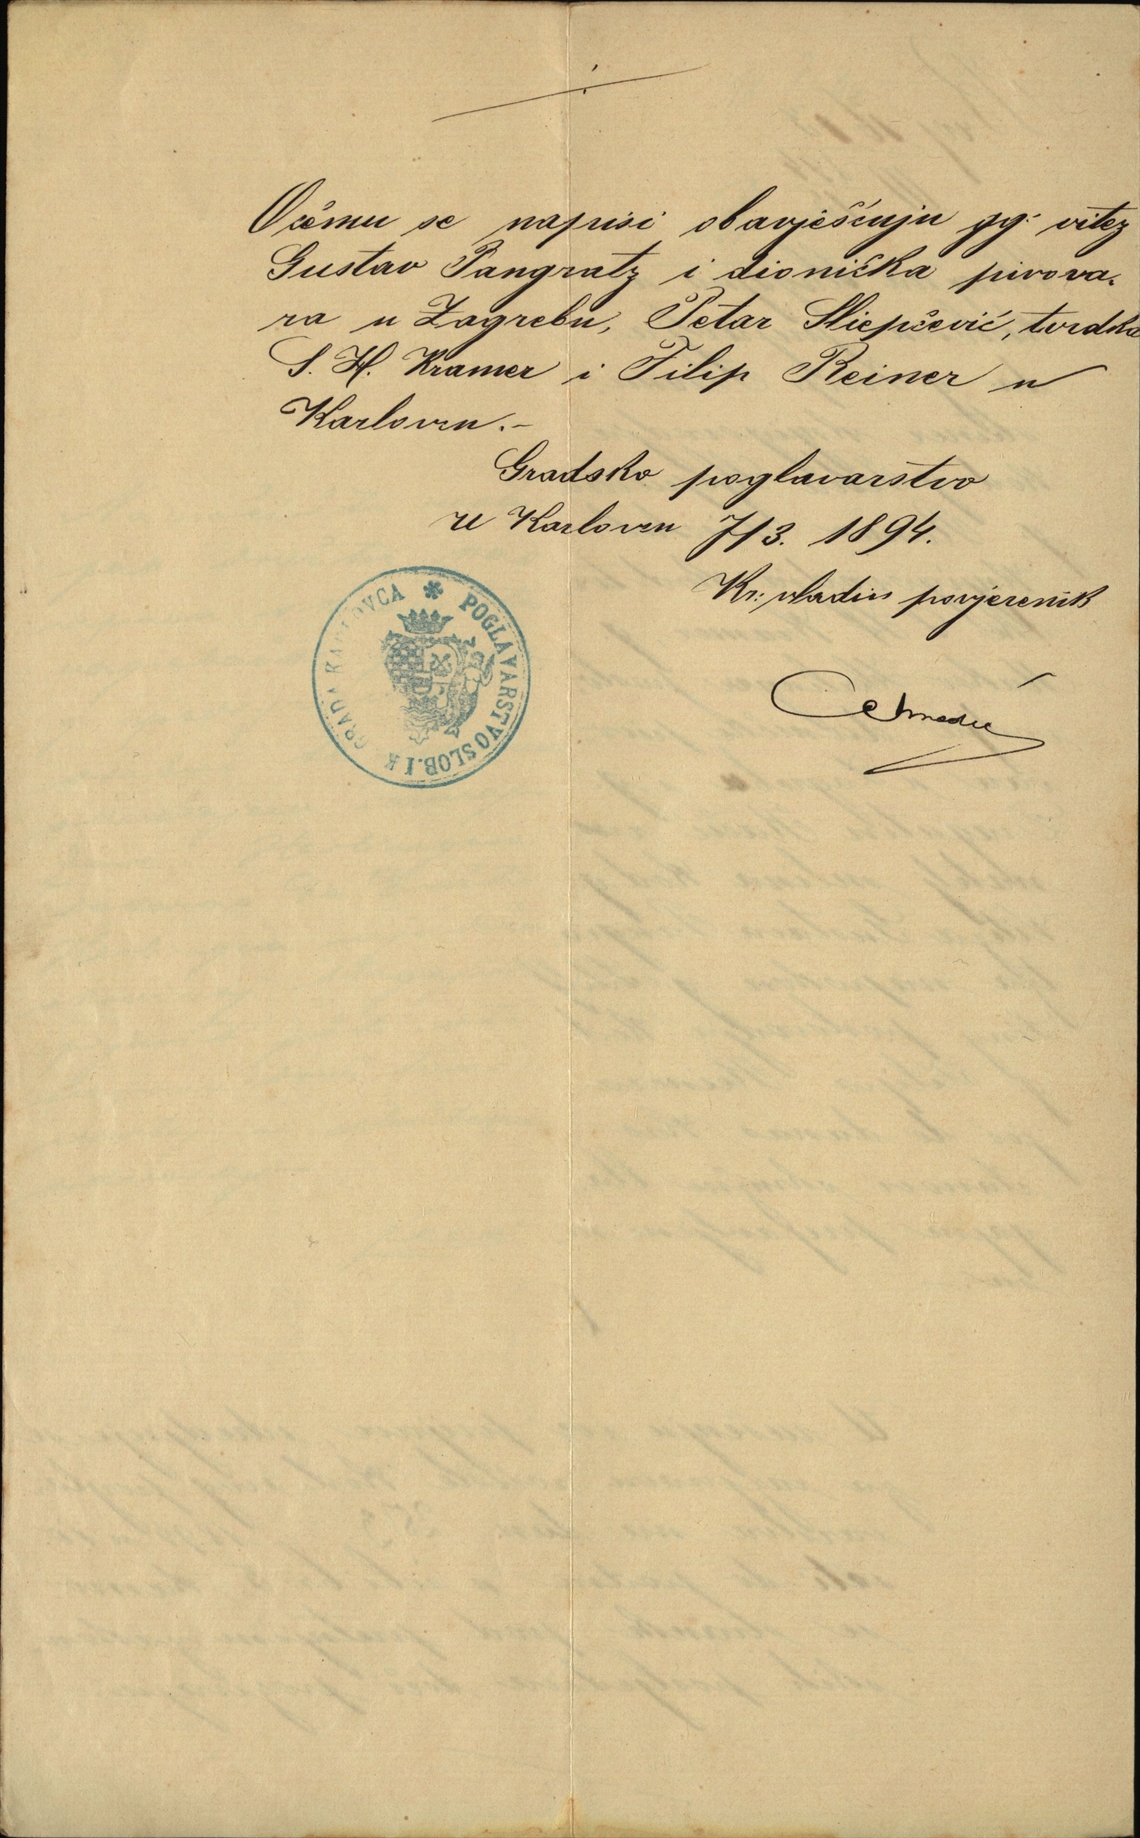 O čemu se napisi obavješćuju gg: vitez
Gustav Pangratz i dionička pivova-
ra u Zagrebu, Petar Sliepčević, tvrdka
S. H. Kramer i Filip Reiner u
Karlovcu.-
Gradsko poglavarstvo
u Karlovcu 7/3. 1894.
Kr: vladin povjerenik
POGLAVARSTVO SLOB. I K GRADA KARLOVCA